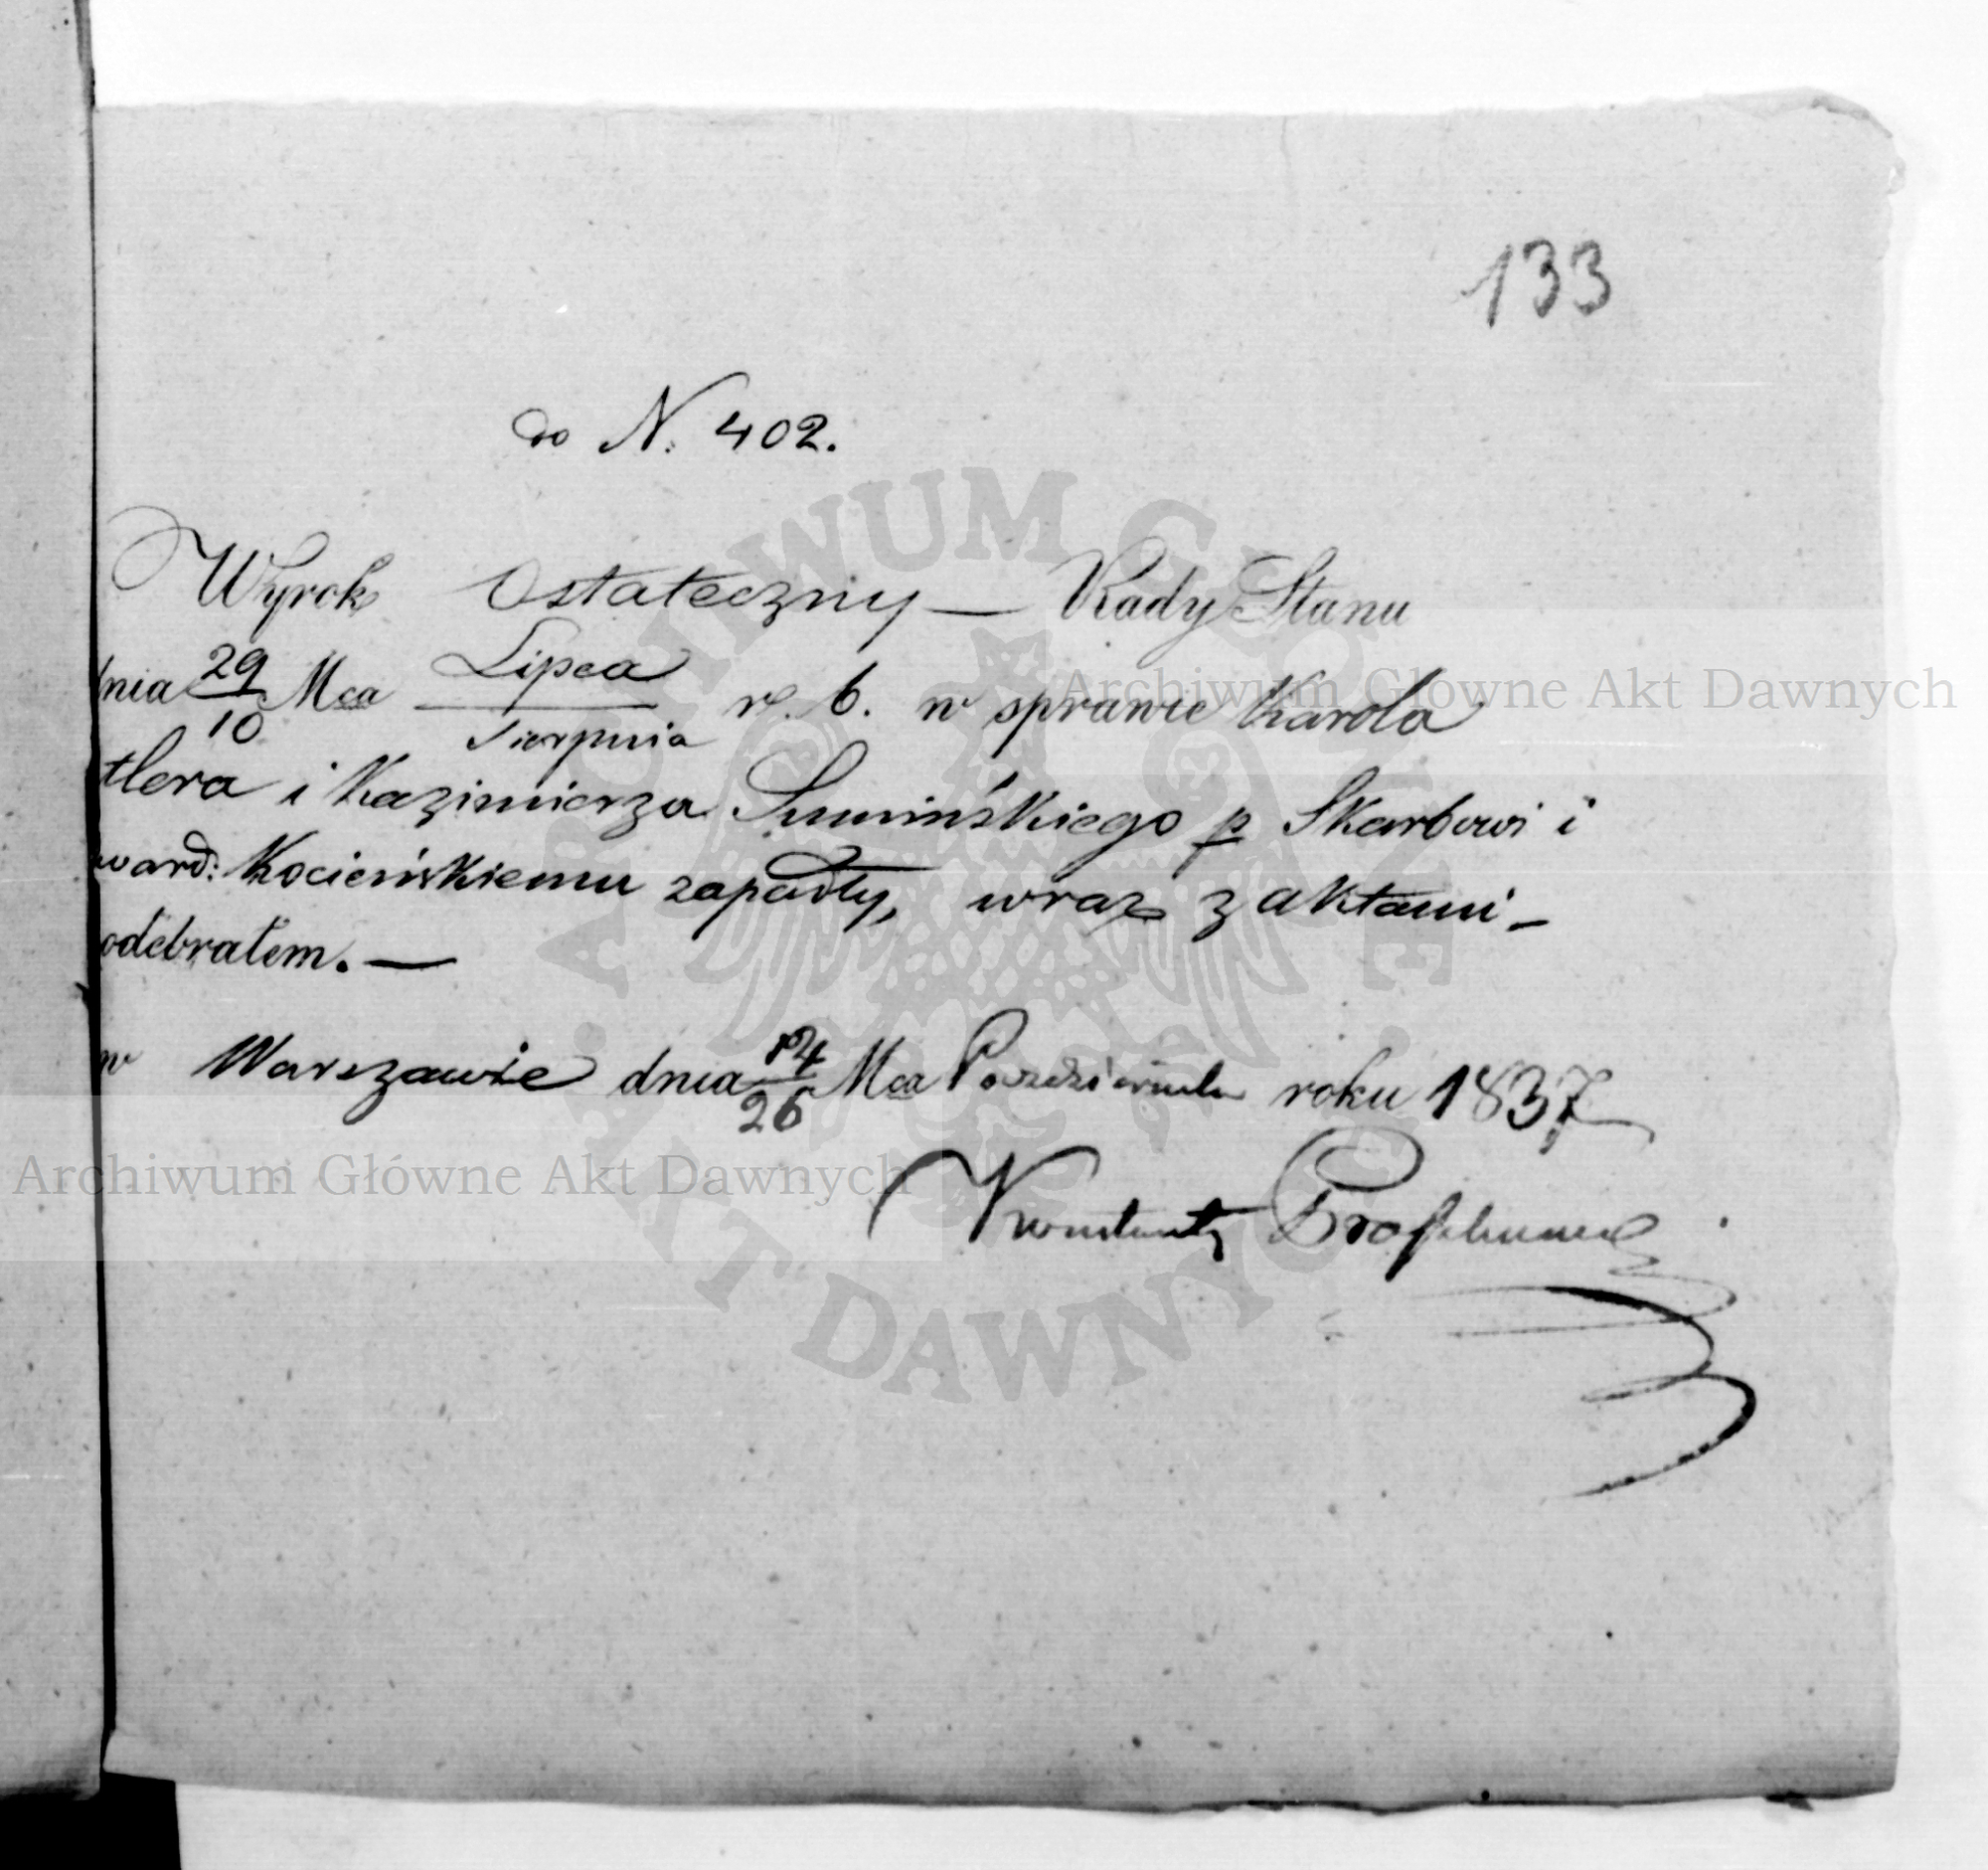 133
do N. 402.
Wyrok Ostateczny — Rady Stanu
dnia 29/10 Mca Lipca/Sierpnia r. b. w sprawie Karola
tlera i Kazimierza Sumińskiego p Skarbowi i
ward: Kocieńskiemu zapadły, wraz z aktami –
odebrałem. —
w Warszawie dnia 14/26 Mca Października roku 1837
Konstanty
ARCHIWUM GŁÓWNE AKT DAWNYCH
Archiwum Główne Akt Dawnych
Archiwum Główne Akt Dawnych